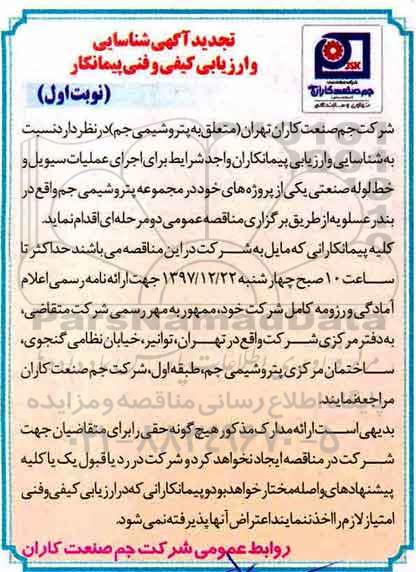 تجدید آگهی شناسایی
و ارزیابی کیفی و فنی پیمانکار
(نوبت اول)
JSK
جم صنعت کاران
شرکت جم صنعت کاران تهران (متعلق به پتروشیمی جم) در نظر دارد نسبت
به شناسایی و ارزیابی پیمانکاران واجد شرایط برای اجرای عملیات سیویل و
خط لوله صنعتی یکی از پروژه های خود در مجموعه پتروشیمی جم واقع در
بندر عسلویه از طریق برگزاری مناقصه عمومی دو مرحله ای اقدام نماید.
کلیه پیمانکارانی که مایل به شرکت در این مناقصه می باشند حداکثر تا
ساعت ۱۰ صبح چهارشنبه ۱۳۹۷/۱۲/۲۲ جهت ارائه نامه رسمی اعلام
آمادگی و رزومه کامل شرکت خود، ممهور به مهر رسمی شرکت متقاضی،
به دفتر مرکزی شرکت واقع در تهران، توانیر، خیابان نظامی گنجوی،
ساختمان مرکزی پتروشیمی جم، طبقه اول، شرکت جم صنعت کاران
مراجعه نمایند.
بدیهی است ارائه مدارک مذکور هیچ گونه حقی را برای متقاضیان جهت
شرکت در مناقصه ایجاد نخواهد کرد و شرکت در رد یا قبول یک یا کلیه
پیشنهادهای واصله مختار خواهد بود و پیمانکارانی که در ارزیابی کیفی و فنی
امتیاز لازم را اخذ ننمایند اعتراض آنها پذیرفته نمی شود.
روابط عمومی شرکت جم صنعت کاران
ParsNamadData
پایگاه اطلاع رسانی مناقصه و مزایده
۰۲۱-۸۸۳۴۹۶۷۰-۵